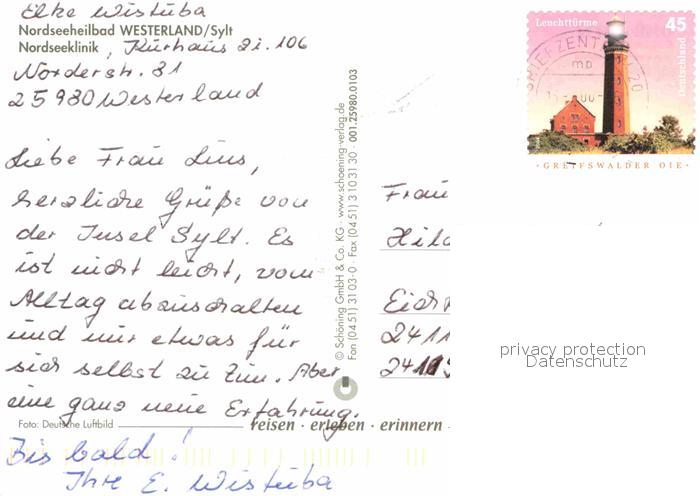 Elke Wistuba
Nordseeheilbad WESTERLAND/Sylt
Nordseeklinik, Kurhaus Zi. 106
Norderstr. 81
25980 Westerland
Liebe Frau Lins,
herzliche Grüße von
der Insel Sylt. Es
ist nicht leicht, vom
Alltag abzuschalten
und nur etwas für
sich selbst zu tun. Aber
eine ganz neue Erfahrung.
Bis bald!
Ihre E. Wistuba
Foto: Deutsche Luftbild
reisen · erleben · erinnern
© Schöning GmbH & Co. KG · www.schoening-verlag.de
Fon (04 51) 31 03-0 · Fax (04 51) 3 10 31 30 · 001.25980.0103
Frau
Hild
Eich
2411
2411
Leuchttürme 45
Deutschland
BRIEFZENTRUM 20
mp
GREIFSWALDER OIE
privacy protection
Datenschutz